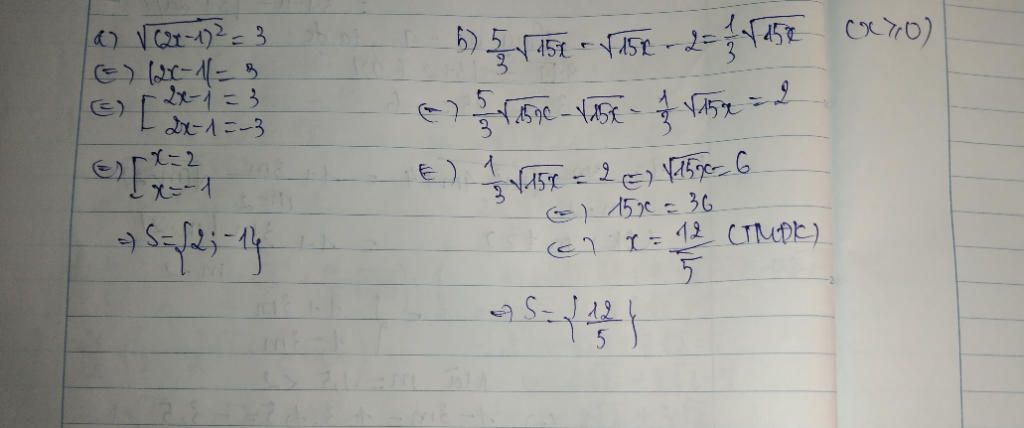 a) √(2x-1)² = 3
(=) |2x-1| = 3
(=) [ 2x-1 = 3
2x-1 = -3
(=) [ x = 2
x = -1
=) S = {2; -1}
b) 5/3 √15x - √15x - 2 = 1/3 √15x (x ≥ 0)
(=) 5/3 √15x - √15x - 1/3 √15x = 2
(=) 1/3 √15x = 2 (=) √15x = 6
(=) 15x = 36
(=) x = 12/5 (TMĐK)
=) S = {12/5}